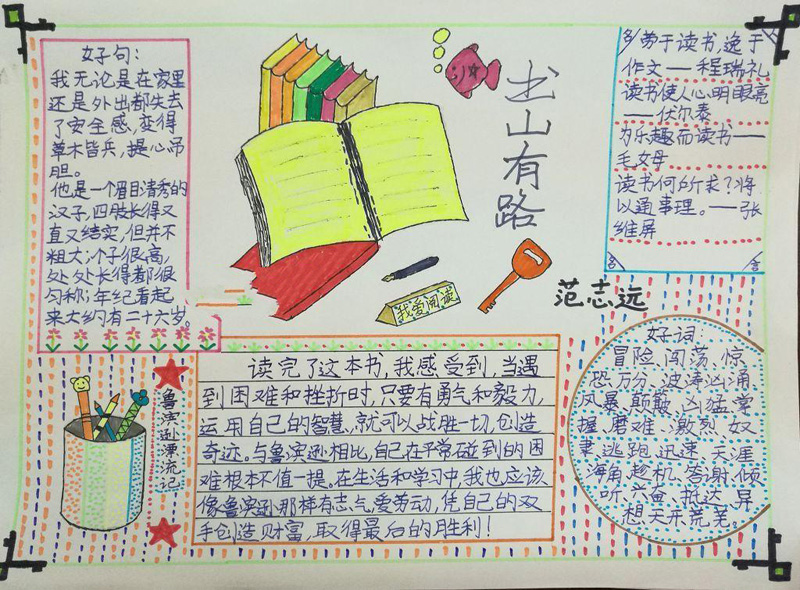 好句：
我无论是在家里
还是外出都失去
了安全感，变得
草木皆兵，提心吊
胆。
他是一个眉目清秀的
汉子，四肢长得又
直又结实，但并不
粗大；个子很高，
处处长得都很
匀称；年纪看起
来大约有二十六岁。
书山有路
我爱阅读
范志远
劳于读书，逸于
作文——程瑞礼
读书使人心明眼亮
——伏尔泰
为乐趣而读书——
毛姆
读书何所求？将
以通事理。——张
维屏
鲁滨逊漂流记
读完了这本书，我感受到，当遇
到困难和挫折时，只要有勇气和毅力，
运用自己的智慧，就可以战胜一切，创造
奇迹。与鲁滨逊相比，自己在平常碰到的困
难根本不值一提。在生活和学习中，我也应该
像鲁滨逊那样有志气，爱劳动，凭自己的双
手创造财富，取得最后的胜利！
好词：
冒险、闯荡、惊
恐万分、波涛汹涌、
风暴、颠簸、凶猛、掌
握、磨难、激烈、奴
隶、逃跑、迅速、天涯
海角、趁机、答谢、倾
听、兴奋、抵达、异
想天开、荒芜。